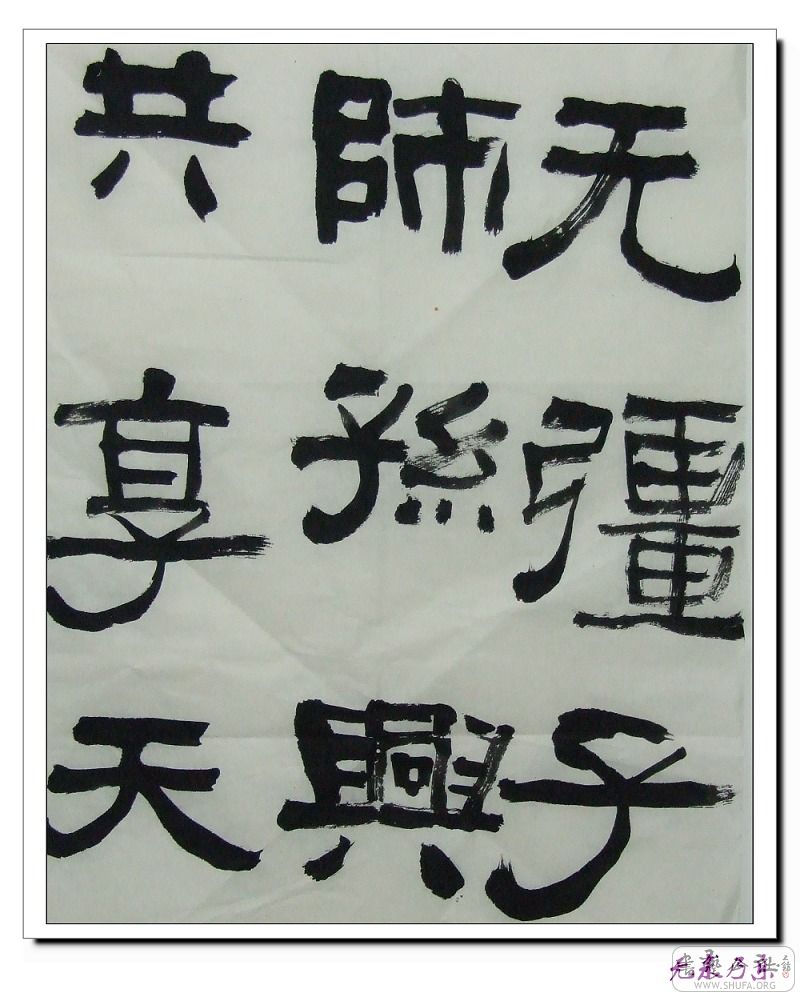 无彊子
師孫興
共享天
WWW.SHUFA.ORG